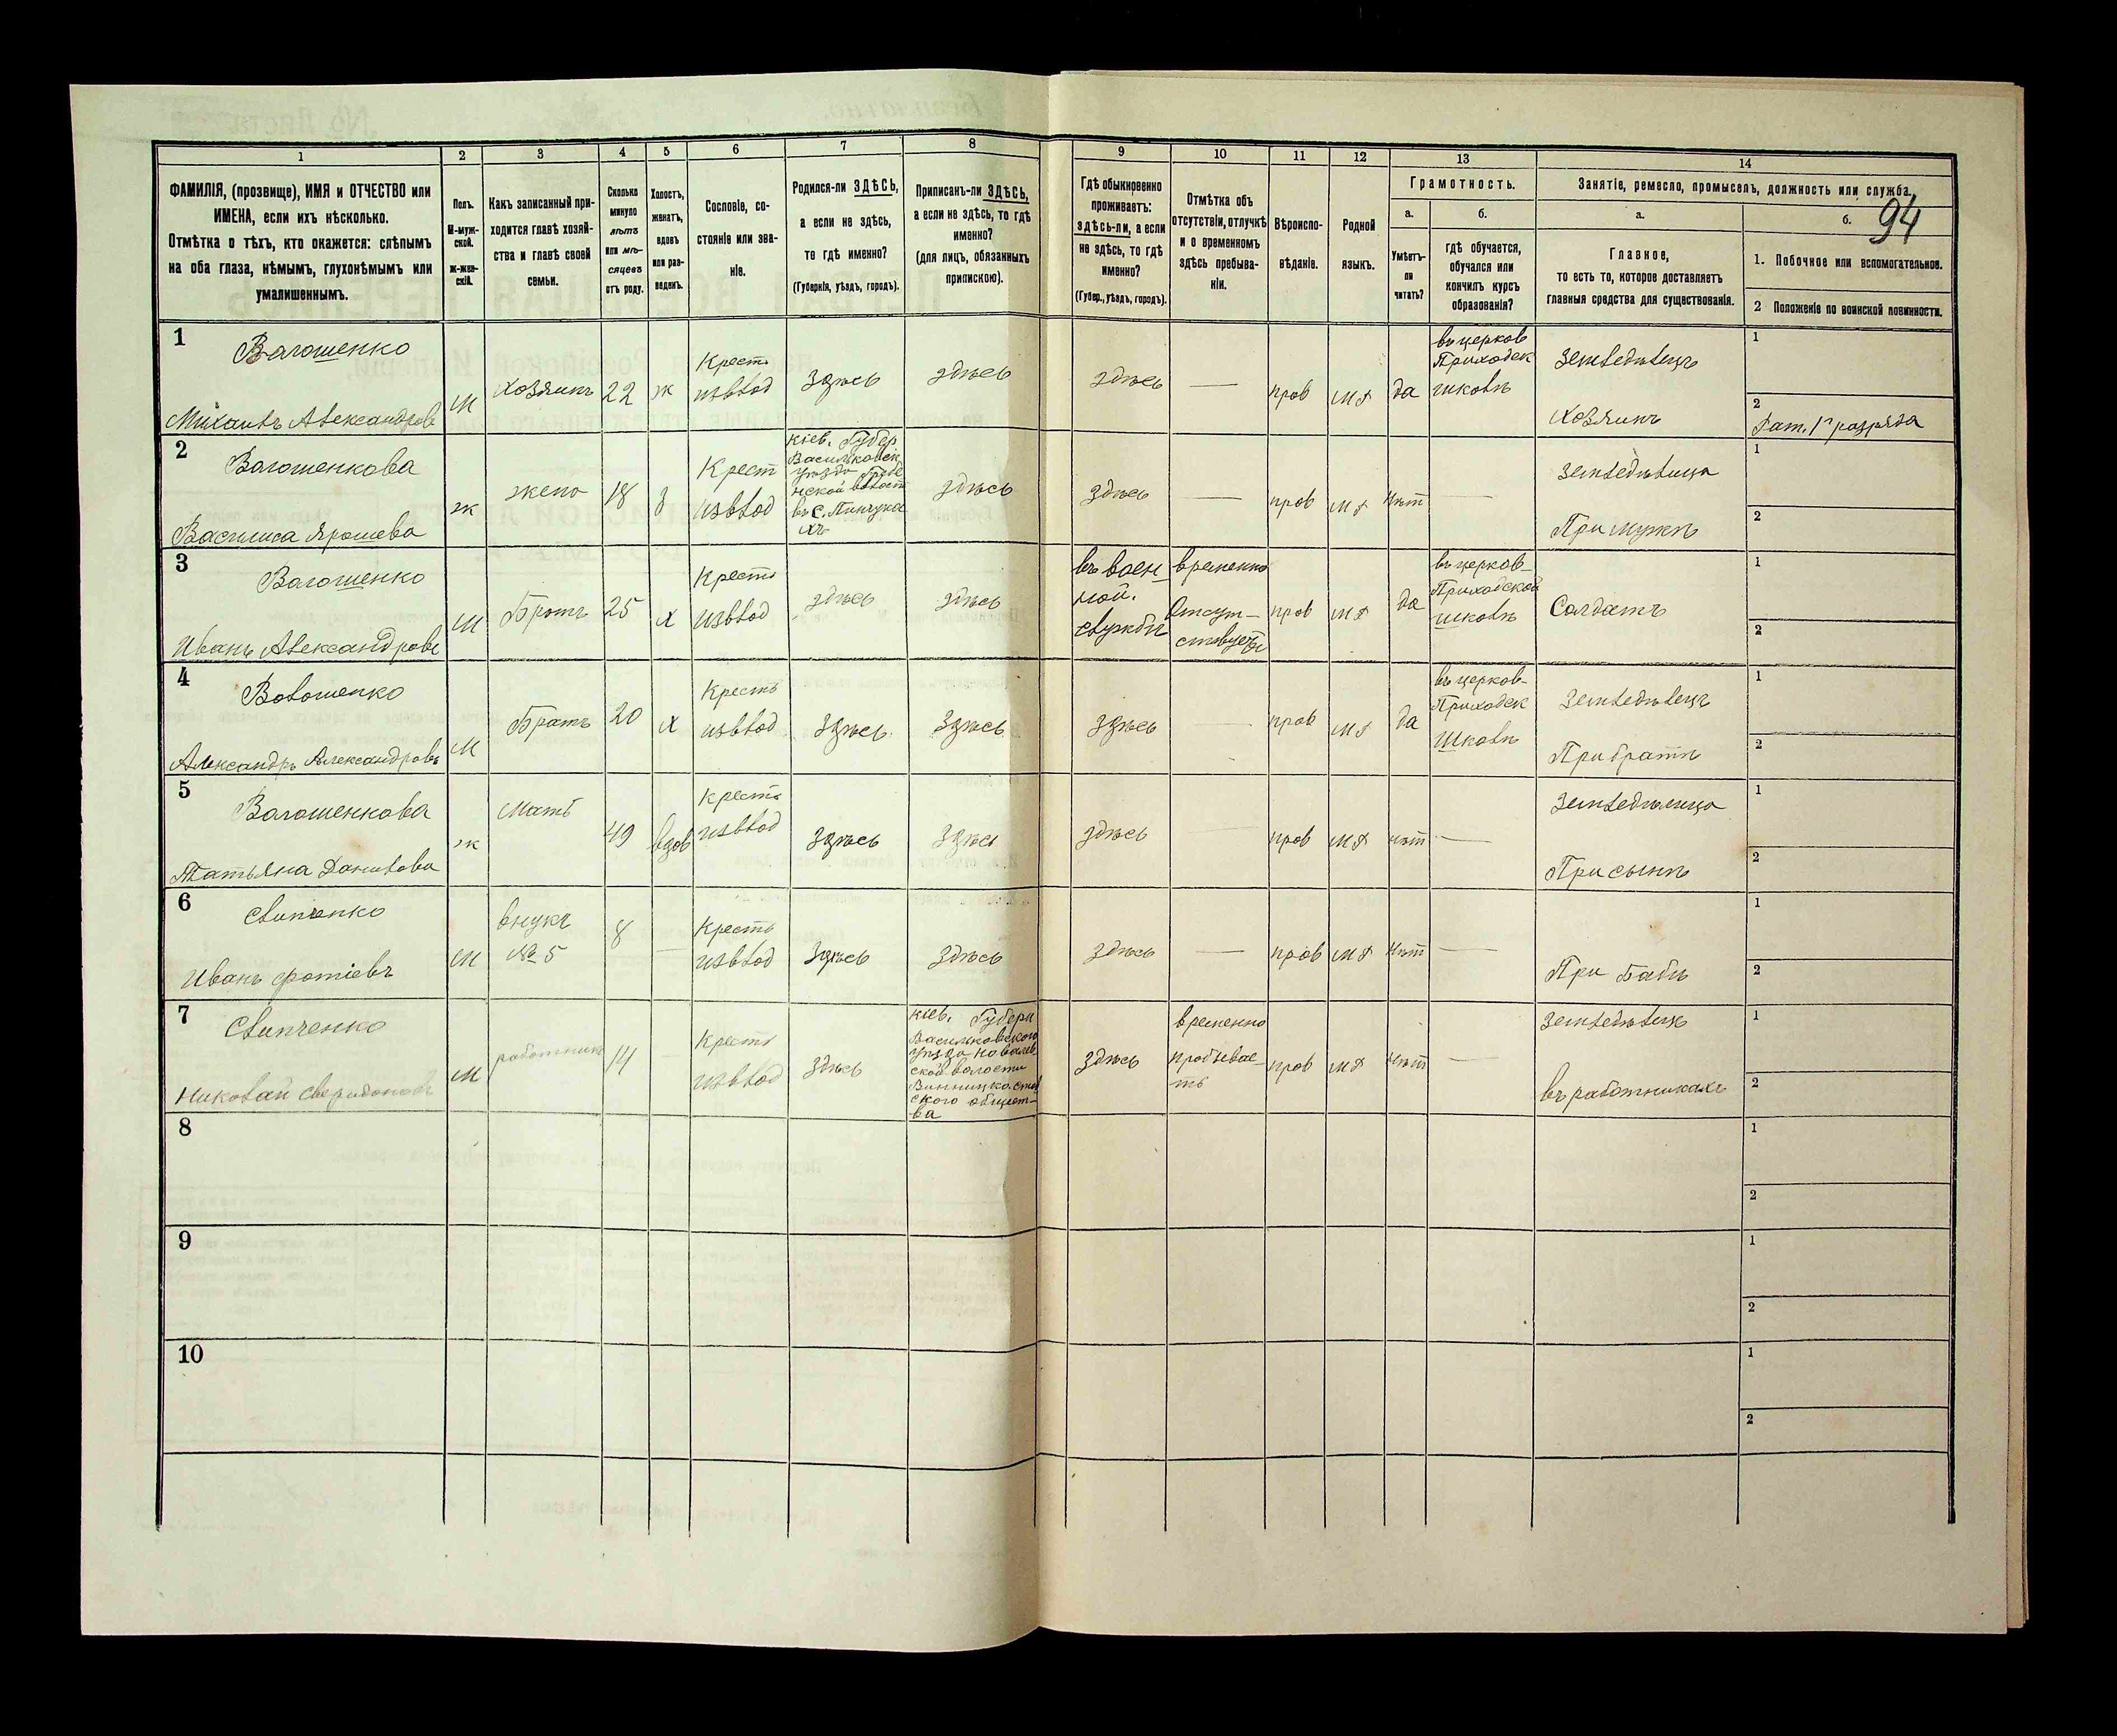 94
1 2 3 4 5 6 7 8 9 10 11 12 13 14
ФАМИЛІЯ, (прозвище), ИМЯ и ОТЧЕСТВО или
ИМЕНА, если ихъ нѣсколько.
Отмѣтка о тѣхъ, кто окажется: слѣпымъ
на оба глаза, нѣмымъ, глухонѣмымъ или
умалишеннымъ.
Полъ.
М-муж-
ской.
ж-жен-
скій.
Какъ записанный при-
ходится главѣ хозяй-
ства и главѣ своей
семьи.
Сколько
минуло
лѣтъ
или мѣ-
сяцевъ
отъ роду.
Холостъ,
женатъ,
вдовъ
или раз-
веденъ.
Сословіе, со-
стояніе или зва-
ніе.
Родился-ли ЗДѢСЬ,
а если не здѣсь,
то гдѣ именно?
(Губернія, уѣздъ, городъ).
Приписанъ-ли ЗДѢСЬ,
а если не здѣсь, то гдѣ
именно?
(для лицъ, обязанныхъ
припискою).
Гдѣ обыкновенно
проживаетъ:
здѣсь-ли, а если
не здѣсь, то гдѣ
именно?
(Губер., уѣздъ, городъ).
Отмѣтка объ
отсутствіи, отлучкѣ
и о временномъ
здѣсь пребыва-
ніи.
Вѣроиспо-
вѣданіе.
Родной
языкъ.
Грамотность.
а.
Умѣетъ-
ли
читать?
б.
гдѣ обучается,
обучался или
кончилъ курсъ
образованія?
Занятіе, ремесло, промыселъ, должность или служба.
а.
Главное,
то есть то, которое доставляетъ
главныя средства для существованія.
б.
1. Побочное или вспомогательное.
2 Положеніе по воинской повинности.
1
Валошенко
Михаилъ Александровъ
м
хозяинъ
22
ж
Крестъ
извлод
здѣсь
здѣсь
здѣсь
—
прав
мл
да
въ церков
Приходск
школѣ
Земледѣлецъ
Хозяинъ
1
2
Рат. 1го разряда
2
Валошенкова
Василиса Ярошева
ж
жена
18
з
Крест
извлод
кіев. Губер
Васильковск
уѣзда
въ с. Пинчука
хъ
здѣсь
здѣсь
—
прав
мл
нѣт
—
Земледѣлица
При мужѣ
1
2
3
Валошенко
Иванъ Александровъ
м
Братъ
25
х
Крестъ
извлод
здѣсь
здѣсь
въ воен
ной.
службѣ
временно
Отсут-
ствуетъ
прав
мл
да
въ церков-
Приходской
школѣ
Солдатъ
1
2
4
Волошенко
Александръ Александровъ
м
Братъ
20
х
Крестъ
извлод
здѣсь
здѣсь
здѣсь
—
прав
мл
да
въ церков-
Приходск
Школѣ
Земледѣлецъ
При братѣ
1
2
5
Валошенкова
Татьяна Данилова
ж
Мать
49
вдов
Крестъ
извлод
здѣсь
здѣсь
здѣсь
—
прав
мл
нѣт
—
Земледѣлица
При сынѣ
1
2
6
Слипченко
Иванъ Фотіевъ
м
внукъ
№ 5
8
—
Крестъ
извлод
здѣсь
здѣсь
здѣсь
—
прав
мл
нѣт
—
При Бабѣ
1
2
7
Слипченко
Николай Свиридоновъ
м
работникъ
14
—
Крестъ
извлод
здѣсь
кіев. Губерн
Васильковского
уѣзда
ской волости
ского общест-
ва
здѣсь
временно
пробывае-
тъ
прав
мл
нѣт
—
Земледѣлецъ
въ работникахъ
1
2
8
1
2
9
1
2
10
1
2